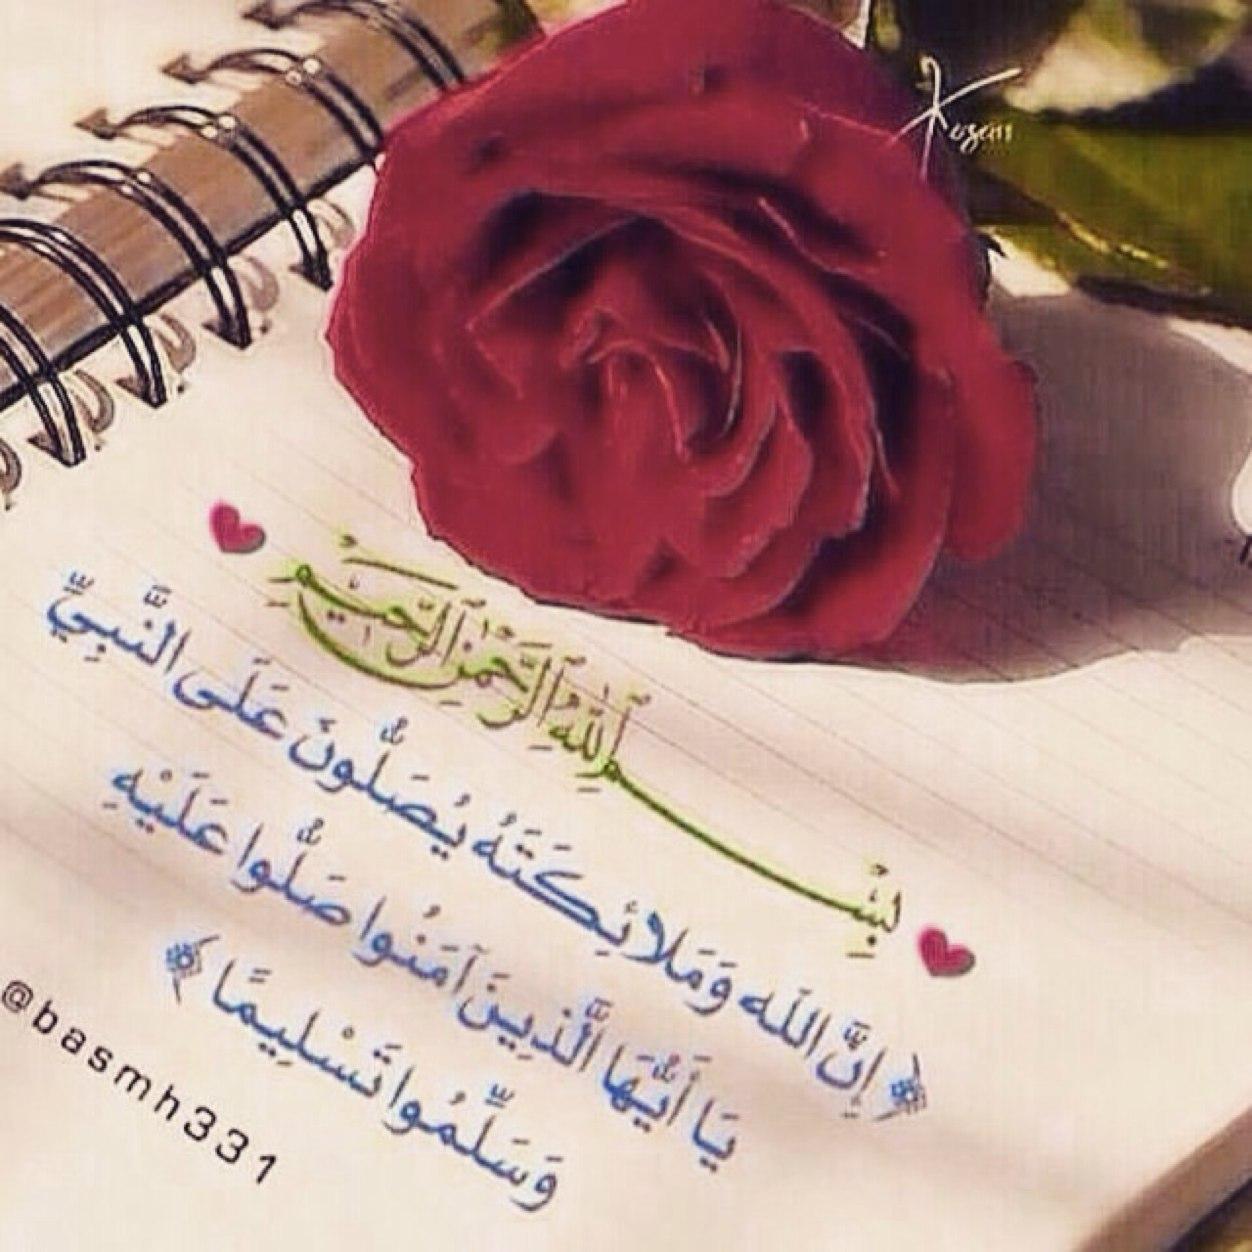 Kozan
بِسْمِ اللَّهِ الرَّحْمَٰنِ الرَّحِيمِ
﴿ إِنَّ اللَّه وَمَلائِكَتَهُ يُصَلُّونَ عَلَى النَّبِيِّ
يَا أَيُّهَا الَّذِينَ آمَنُوا صَلُّوا عَلَيْهِ
وَسَلِّمُوا تَسْلِيمًا ﴾
@basmh331